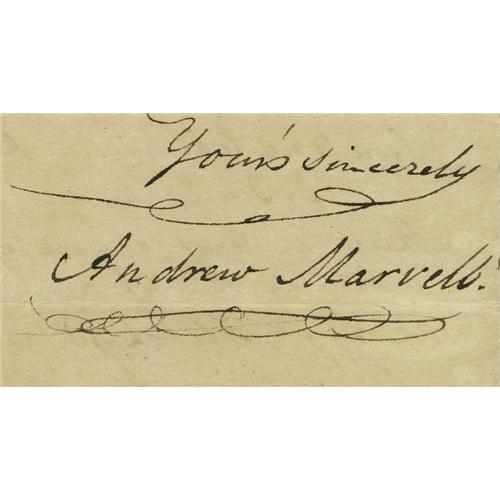 Your's sincerely
Andrew Marvell.